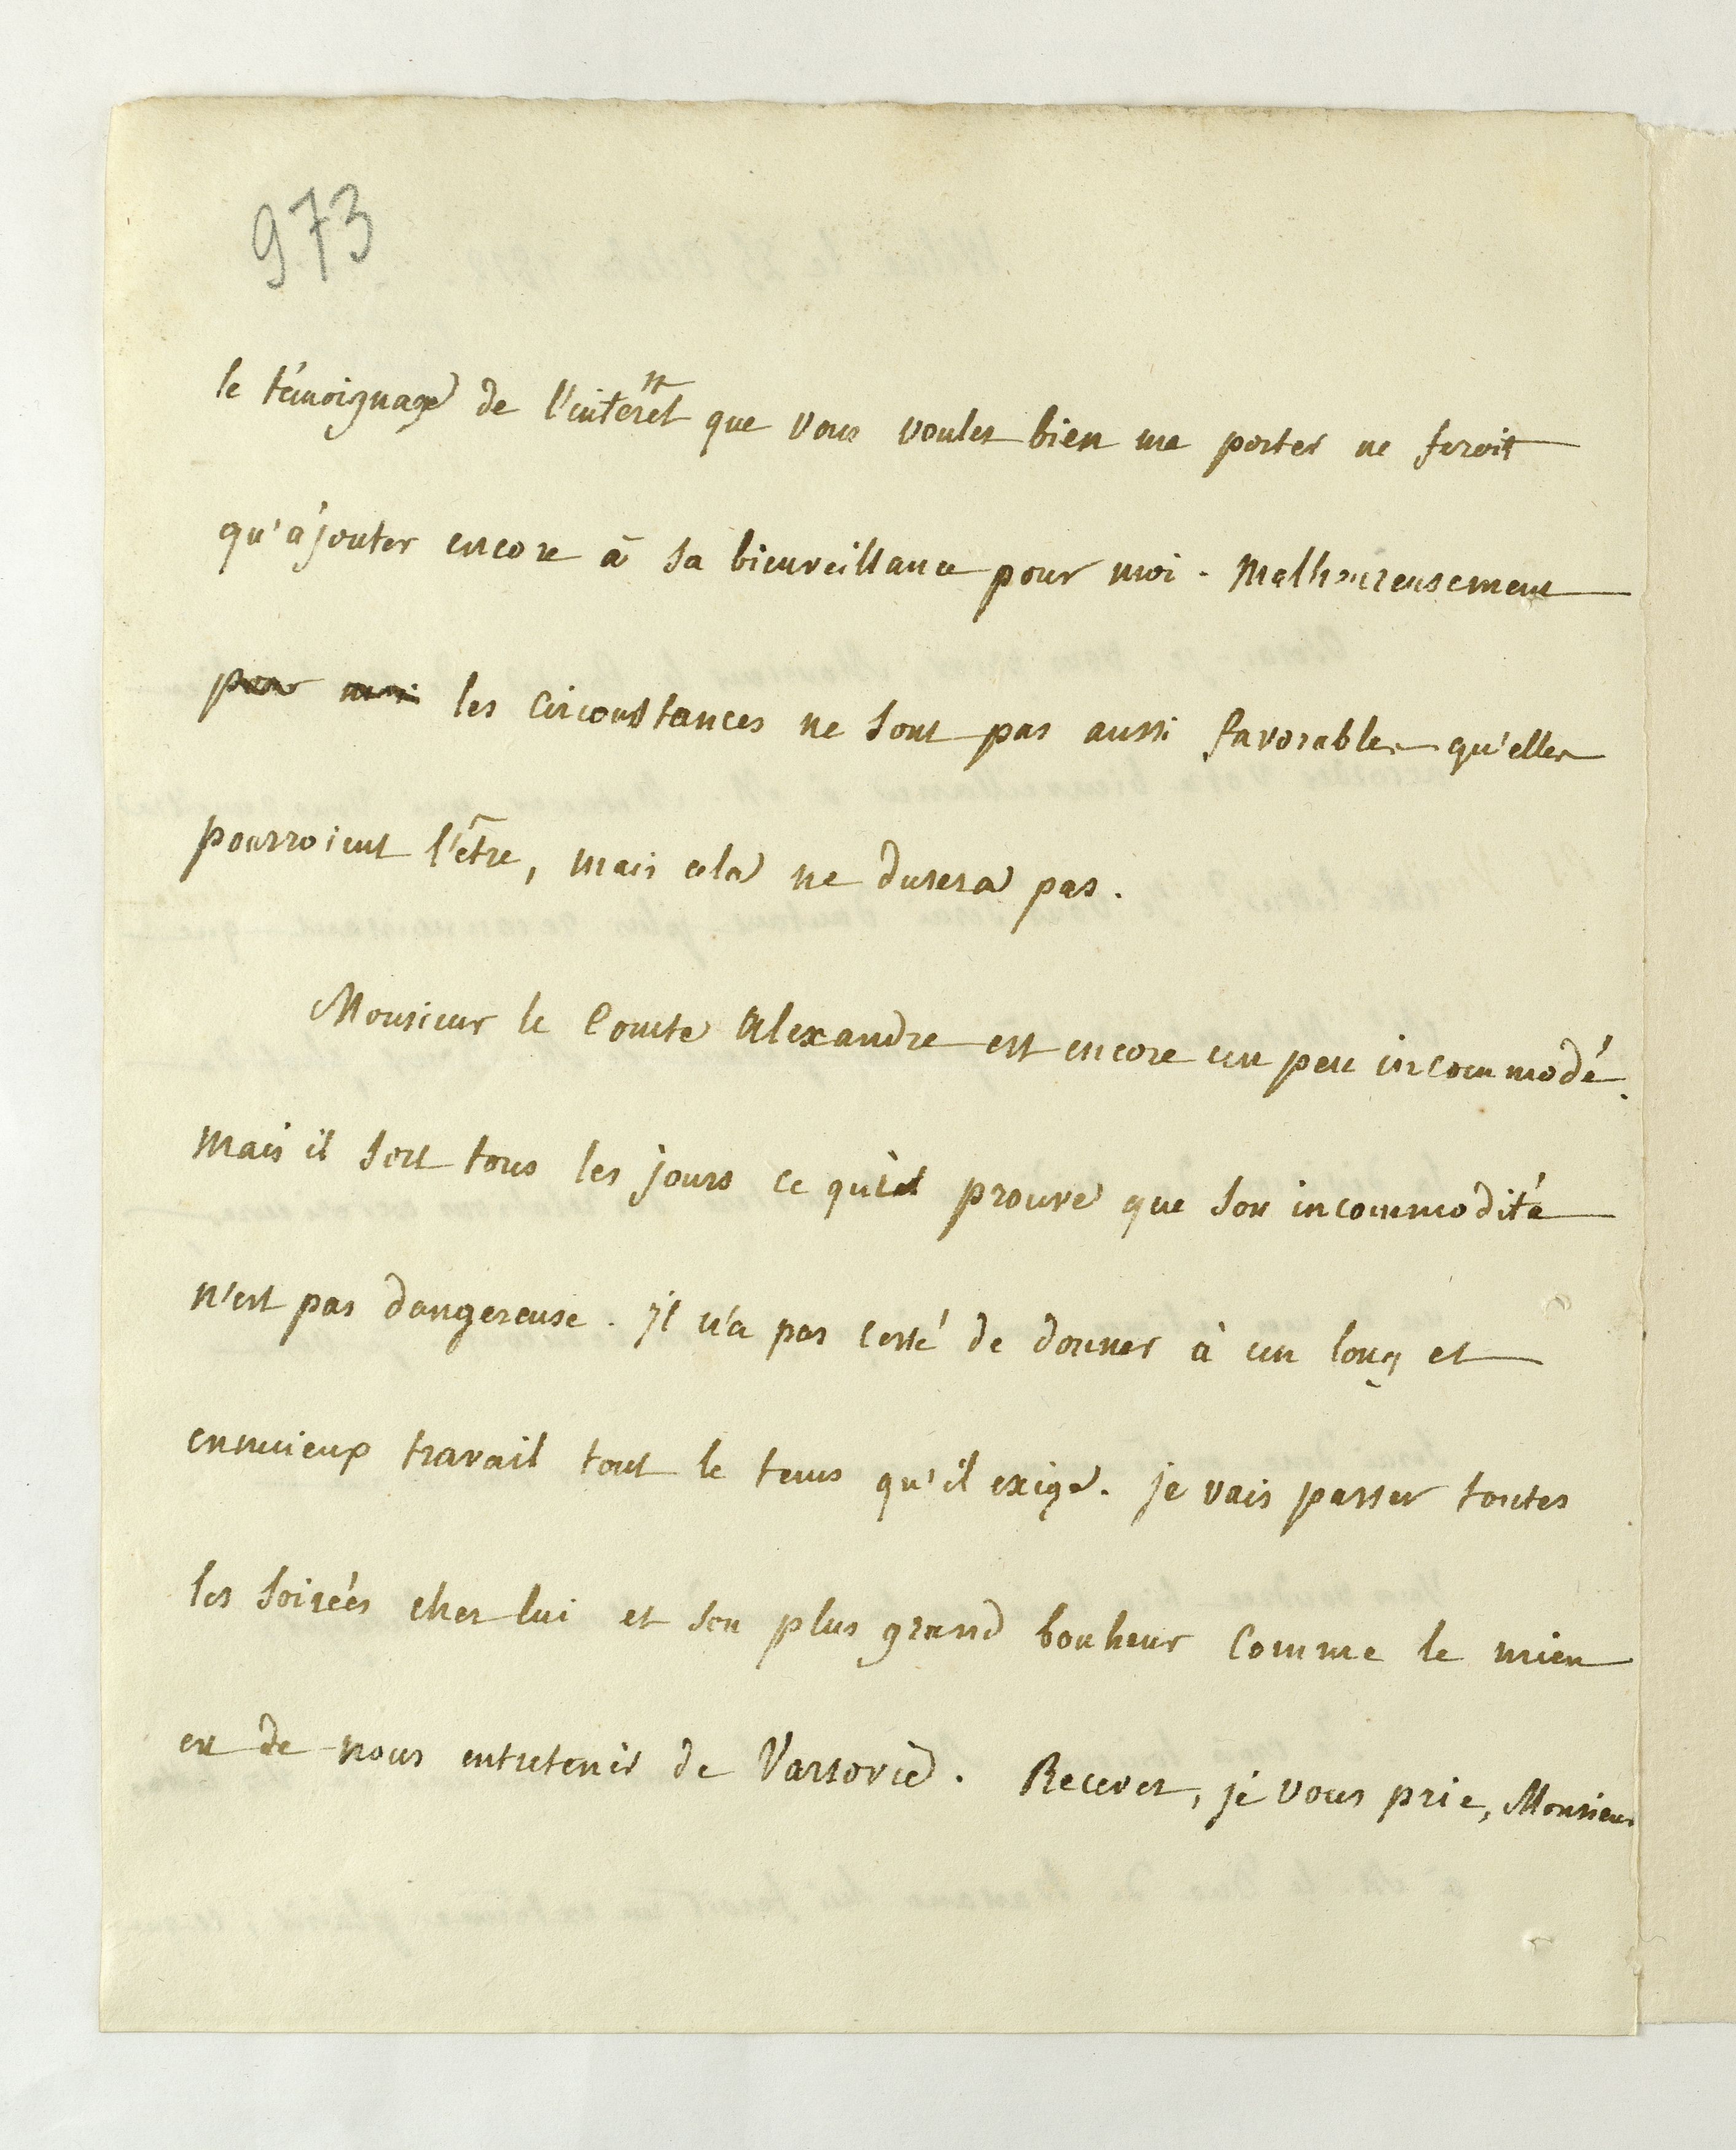 973
le témoignage de l'intérêt que vous voulez bien me porter ne feroit
qu'ajouter encore à sa bienveillance pour moi. Malheureusement
pour moi les circonstances ne sont pas aussi favorables qu'elles
pourroient l'être, mais cela ne durera pas.
Monsieur le Comte Alexandre est encore un peu incommodé.
mais il sort tous les jours ce qui prouve que son incommodité
n'est pas dangereuse. Il n'a pas cessé de donner à un long et
ennuieux travail tout le tems qu'il exige. je vais passer toutes
les soirées chez lui et son plus grand bonheur comme le mien
est de nous entretenir de Varsovie. Recevez, je vous prie, Monsieur